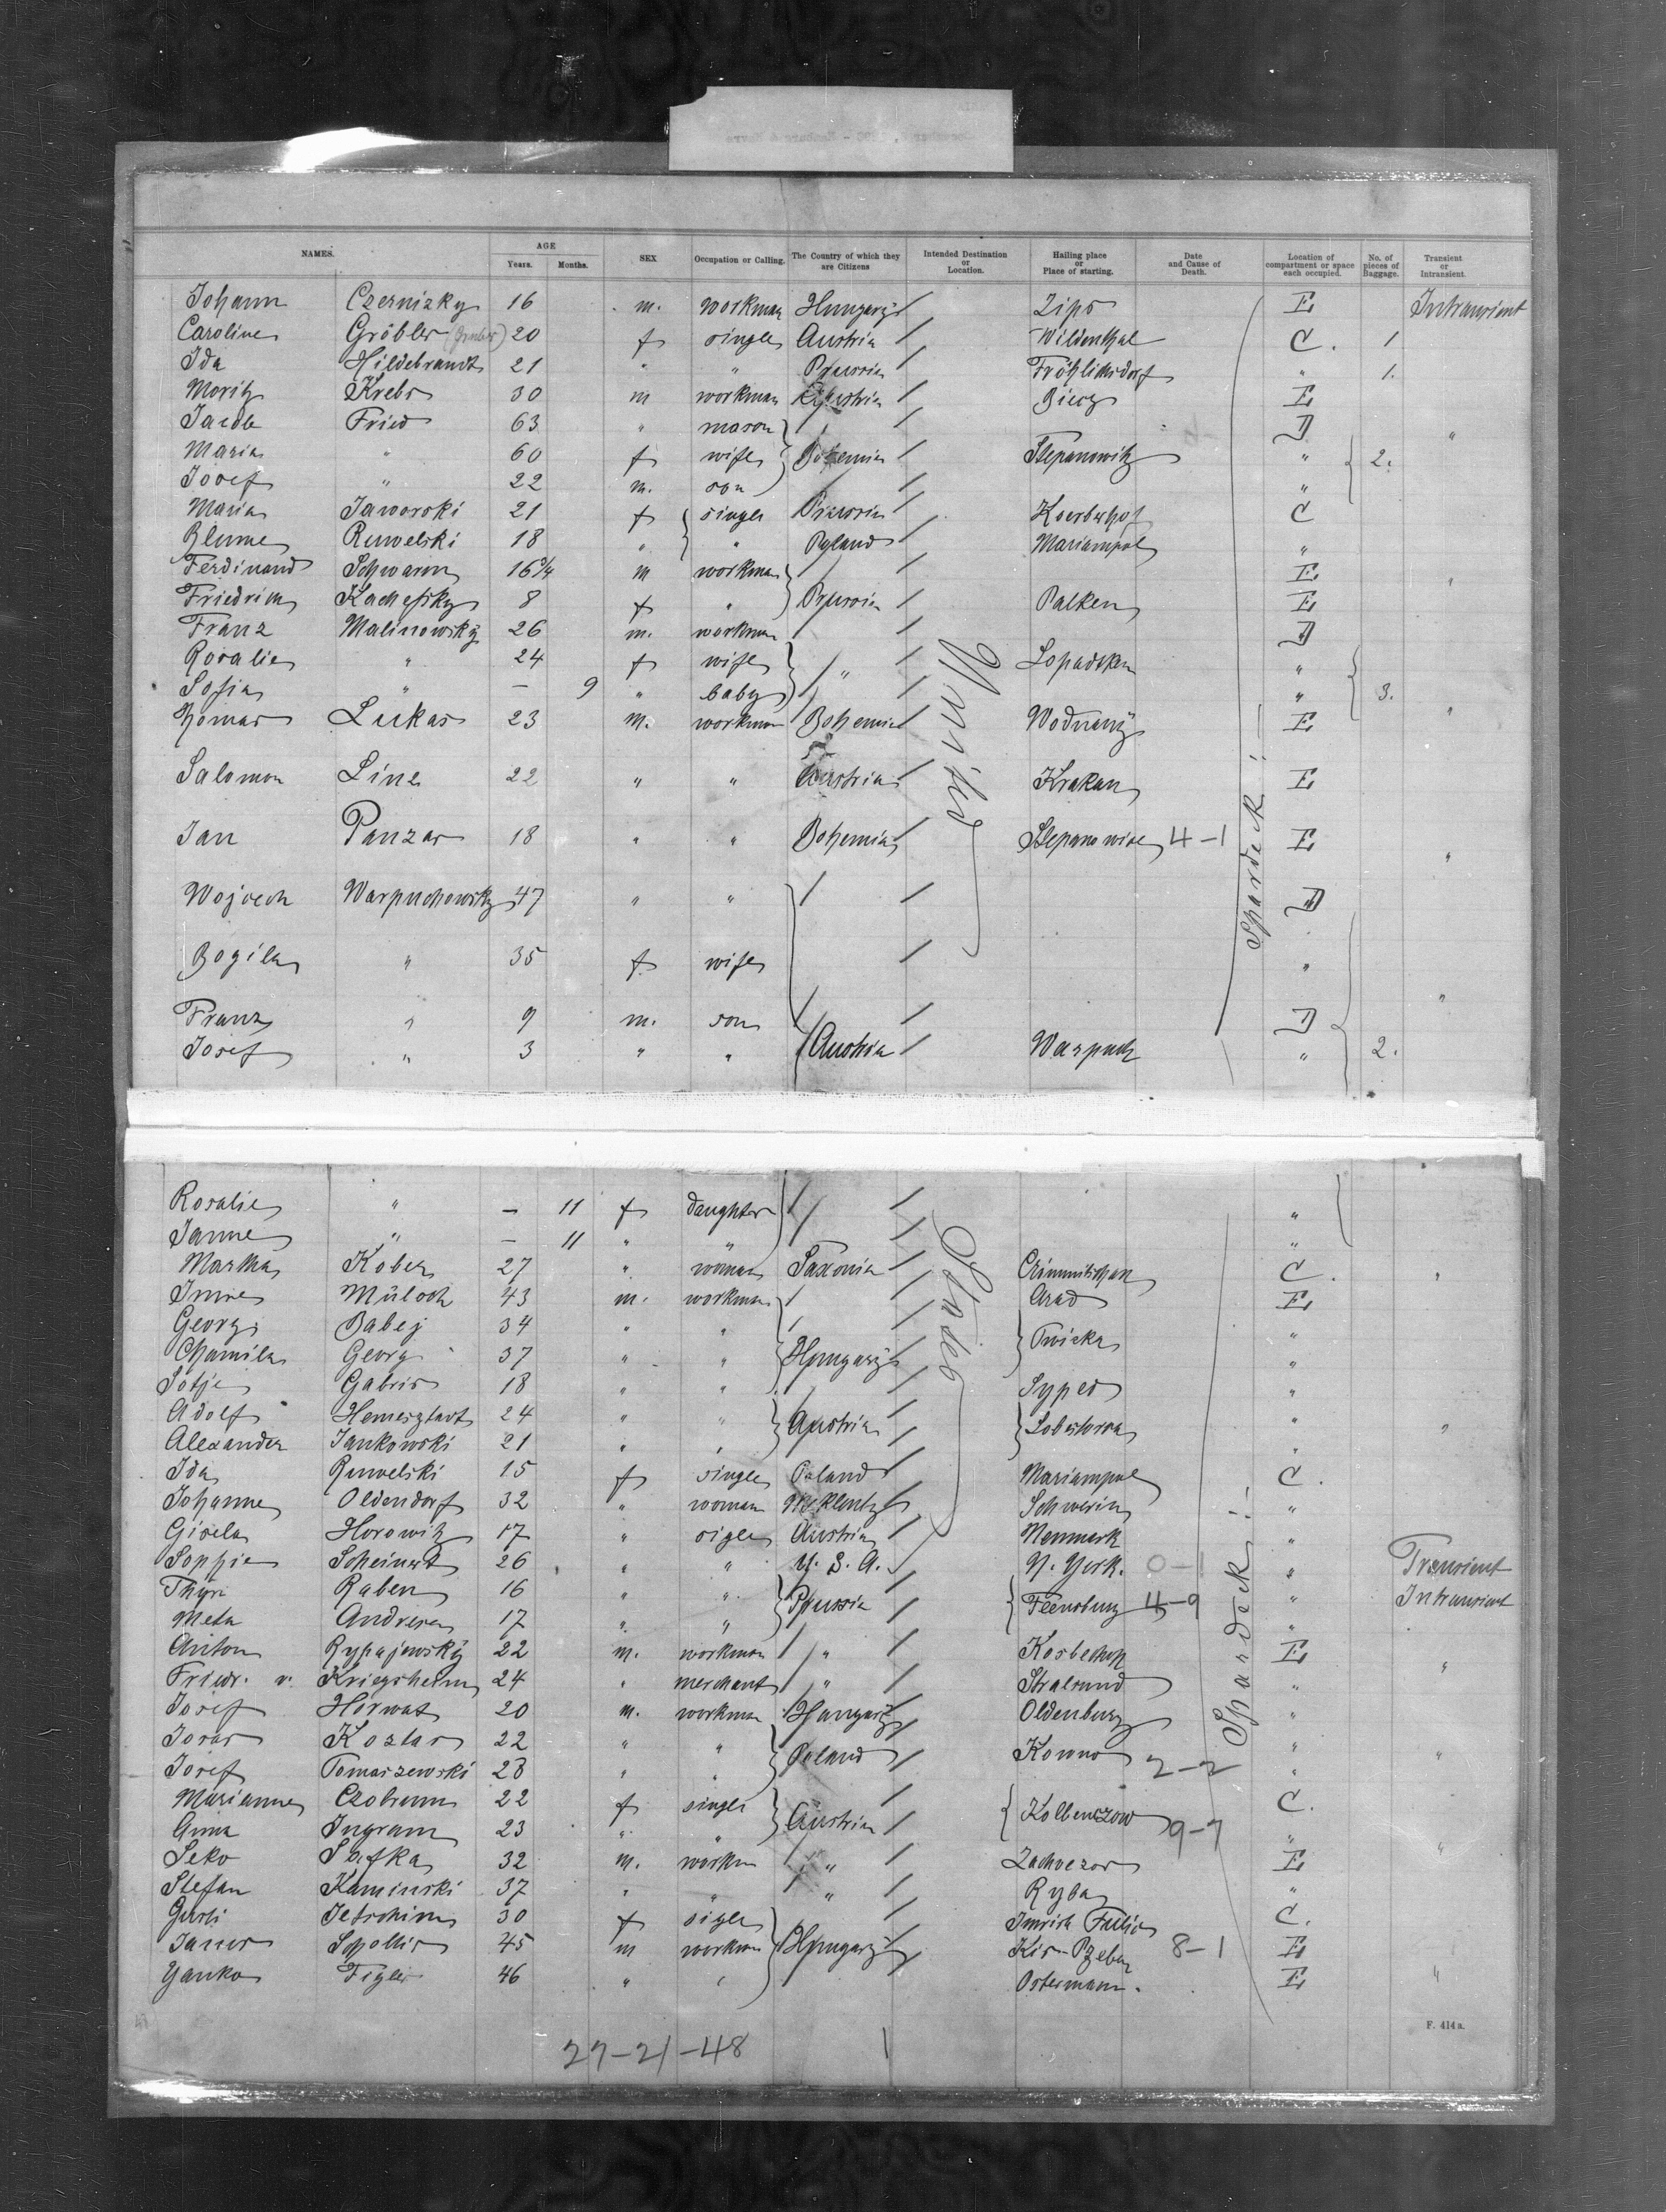 NAMES. AGE Years. Months. SEX Occupation or Calling. The Country of which they are Citizens Intended Destination or Location. Hailing place or Place of starting. Date and Cause of Death. Location of compartment or space each occupied. No. of pieces of Baggage. Transient or Intransient.
Johann Czernizky 16 m. workman Hungary Zips E Intransient
Caroline Gröbler 20 f single Austria Wildenthal C. 1
Ida Hildebrandt 21 " " Prussia Fröhlichsdorf " 1.
Moritz Krebs 30 m workman Austria Biecz E
Jacob Fried 63 " mason D "
Maria " 60 f wife Bohemia Stepanowitz " 2.
Josef " 22 m. son "
Maria Jaworski 21 f single Prussia Koerberhof C
Blume Ruwelski 18 " " Poland Mariampol "
Ferdinand Schwarm 16¾ m workman E "
Friedrich 8 f " Prussia Palken E
Franz Malinowsky 26 m. workman D
Rosalie " 24 f wife " "
Sofia " — 9 " baby " 3.
Thomas Lukas 23 m. workman Bohemia Wodnany E "
Salomon Linz 22 " " Austria Krakau E
Jan Panzar 18 " " Bohemia 4-1 E "
Wojcech Warpuchowsky 47 " " D
Bogila " 35 f wife " "
Franz " 9 m. son D
Josef " 3 " " Austria Warpuch " 2.
United
Spardeck:
Rosalie " — 11 f daughter "
Janne " — 11 " " "
Martha Kober 27 " woman Saxonia Crimmitschau C. "
Imre Müloch 43 m. workman Arad E
Georg Babej 34 " " "
Chamila Georg 37 " " Hungary "
Gabris 18 " " Sypes "
Adolf 24 " " Austria " "
Alexander Jankowski 21 " " "
Ida Ruwelski 15 f single Poland Mariampol C.
Johanne Oldendorf 32 " woman Schwerin "
Gisela Horowitz 17 " sigle Austria Neumark "
Soppie 26 " " U. S. A. N. York. 0-1 " Transient
Thyri Raben 16 " " Prussia Flensburg 4-9 " Intransient
Meta Andresen 17 " " "
Anton 22 m. workman " E
Friedr. v. Kriegsheim 24 " merchant " Stralsund " "
Josef Horwat 20 m. workman Hungary Oldenburg "
Kozlar 22 " " Poland Kowno 2-2 " "
Josef Tomaszewski 28 " " "
Marianne 22 f single Austria C.
Anna Ingram 23 " " 9-7 " "
Seko 32 m. workm " E
Stefan Kaminski 37 " " " Ryba "
30 f sigle C.
45 m workman Hungary 8-1 E
Yanko Figler 46 " " Ostermann. E "
States
Spardeck:
F. 414a.
27-21-48